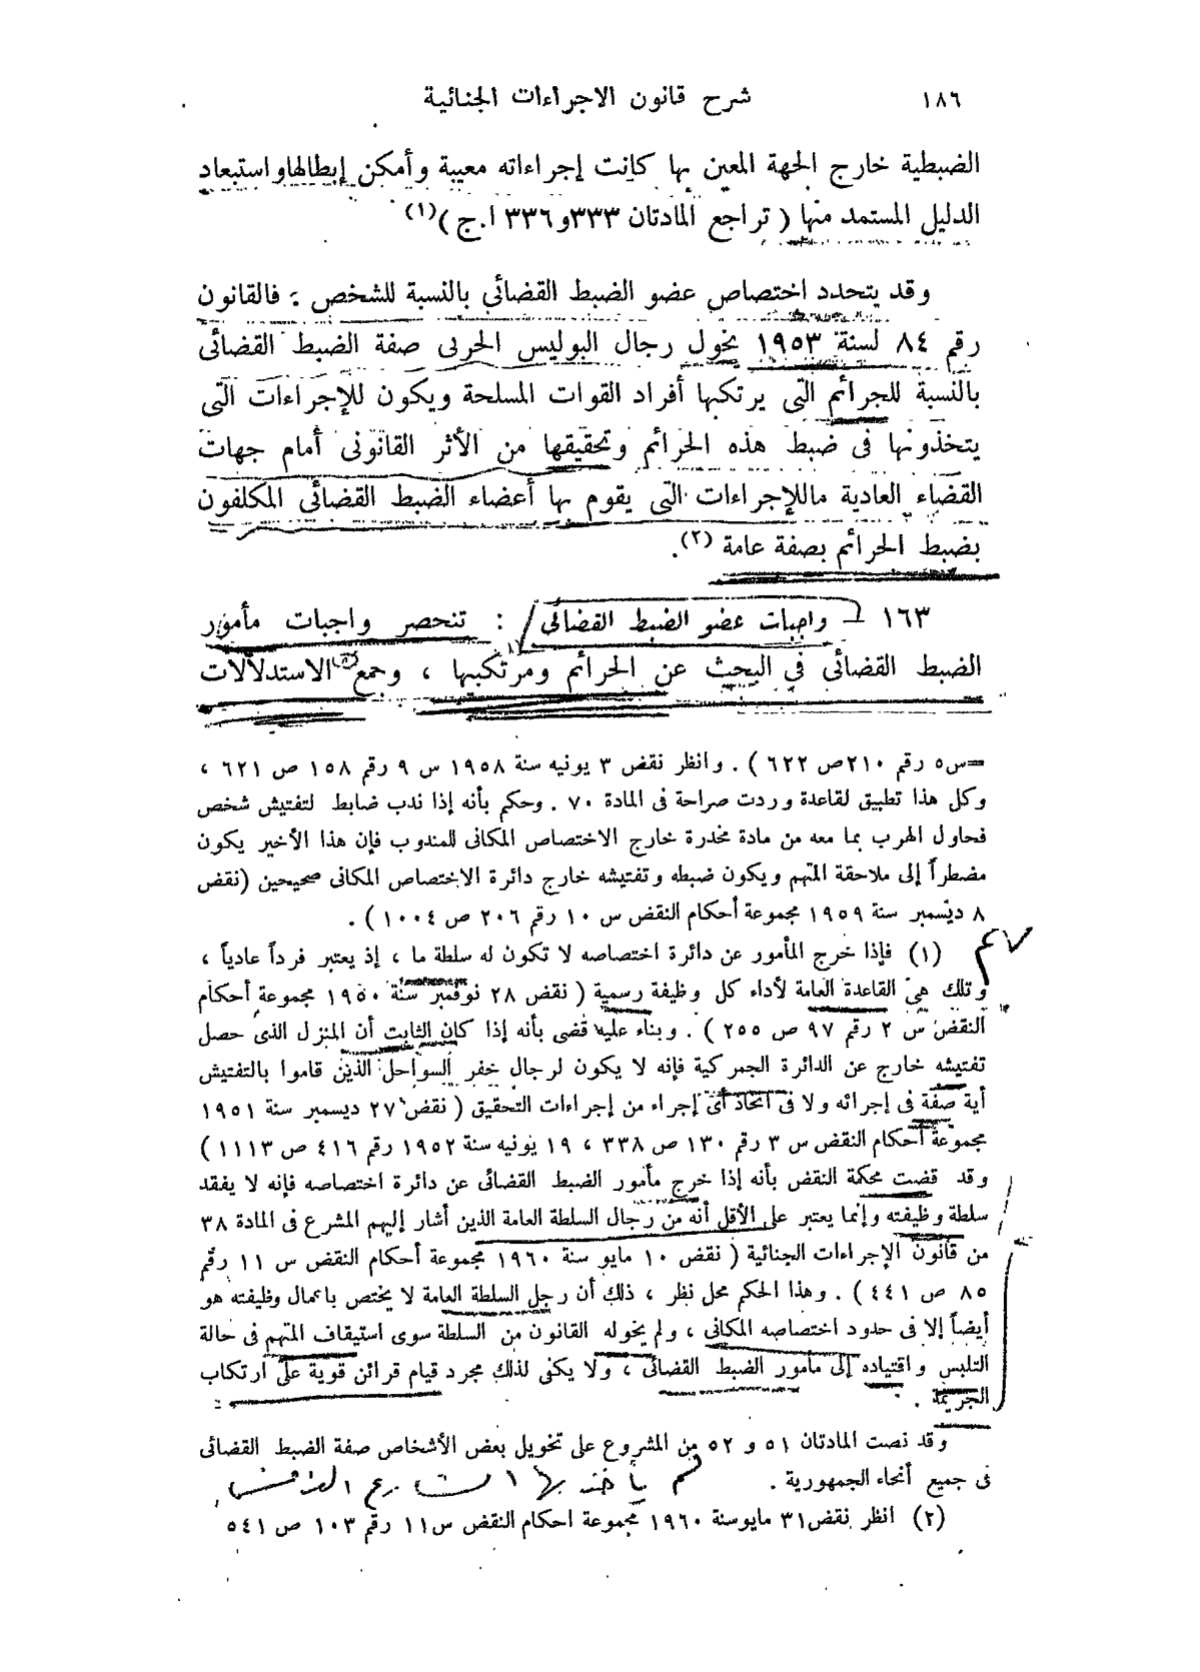 ١٨٦
شرح قانون الاجراءات الجنائية
الضبطية خارج الجهة المعين بها كانت إجراءاته معيبة وأمكن إبطالهاو استبعاد
الدليل المستمد منها ( تراجع المادتان ٣٣٣و ٣٣٦ ا.ج )(١)
وقد يتحدد اختصاص عضو الضبط القضائى بالنسبة للشخص : فالقانون
رقم ٨٤ لسنة ١٩٥٣ يخول رجال البوليس الحربى صفة الضبط القضائى
بالنسبة للجرائم التى يرتكبها أفراد القوات المسلحة ويكون للإجراءات التى
يتخذونها فى ضبط هذه الجرائم وتحقيقها من الأثر القانونى أمام جهات
القضاء العادية ماللإجراءات التى يقوم بها أعضاء الضبط القضائى المكلفون
بضبط الجرائم بصفة عامة (٢).
١٦٣ – واجبات عضو الضبط القضائى : تنحصر واجبات مأمور
الضبط القضائى فى البحث عن الجرائم ومرتكبيها ، وجمع الاستدلالات
=س٥ رقم ٢١٠ص ٦٢٢ ) . وانظر نقض ٣ يونيه سنة ١٩٥٨ س ٩ رقم ١٥٨ ص ٦٢١ ،
وكل هذا تطبيق لقاعدة وردت صراحة فى المادة ٧٠ . وحكم بأنه إذا ندب ضابط لتفتيش شخص
فحاول الهرب بما معه من مادة مخدرة خارج الاختصاص المكانى للمندوب فإن هذا الأخير يكون
مضطراً إلى ملاحقة المتهم ويكون ضبطه وتفتيشه خارج دائرة الاختصاص المكانى صحيحين (نقض
٨ ديسمبر سنة ١٩٥٩ مجموعة أحكام النقض س ١٠ رقم ٢٠٦ ص ١٠٠٤ ) .
(١) فإذا خرج المأمور عن دائرة اختصاصه لا تكون له سلطة ما ، إذ يعتبر فرداً عادياً ،
وتلك هى القاعدة العامة لأداء كل وظيفة رسمية ( نقض ٢٨ نوفمبر سنة ١٩٥٠ مجموعة أحكام
النقض س ٢ رقم ٩٧ ص ٢٥٥ ) . وبناء عليه قضى بأنه إذا كان الثابت أن المنزل الذى حصل
تفتيشه خارج عن الدائرة الجمركية فإنه لا يكون لرجال خفر السواحل الذين قاموا بالتفتيش
أية صفة فى إجرائه ولا فى اتخاذ أى إجراء من إجراءات التحقيق ( نقض ٢٧ ديسمبر سنة ١٩٥١
مجموعة أحكام النقض س ٣ رقم ١٣٠ ص ٣٣٨ ، ١٩ يونيه سنة ١٩٥٢ رقم ٤١٦ ص ١١١٣ )
وقد قضت محكمة النقض بأنه إذا خرج مأمور الضبط القضائى عن دائرة اختصاصه فإنه لا يفقد
سلطة وظيفته وإنما يعتبر على الأقل أنه من رجال السلطة العامة الذين أشار إليهم المشرع فى المادة ٣٨
من قانون الإجراءات الجنائية ( نقض ١٠ مايو سنة ١٩٦٠ مجموعة أحكام النقض س ١١ رقم
٨٥ ص ٤٤١ ) . وهذا الحكم محل نظر ، ذلك أن رجل السلطة العامة لا يختص باعمال وظيفته هو
أيضاً إلا فى حدود اختصاصه المكانى ، ولم يخوله القانون من السلطة سوى استيقاف المتهم فى حالة
التلبس واقتياده إلى مأمور الضبط القضائى ، ولا يكفى لذلك مجرد قيام قرائن قوية على ارتكاب
الجريمة .
وقد نصت المادتان ٥١ و ٥٢ من المشروع على تخويل بعض الأشخاص صفة الضبط القضائى
فى جميع أنحاء الجمهورية . لم يأخذ بها الشارع
(٢) انظر نقض ٣١ مايوسنة ١٩٦٠ مجموعة احكام النقض س١١ رقم ١٠٣ ص ٥٤١